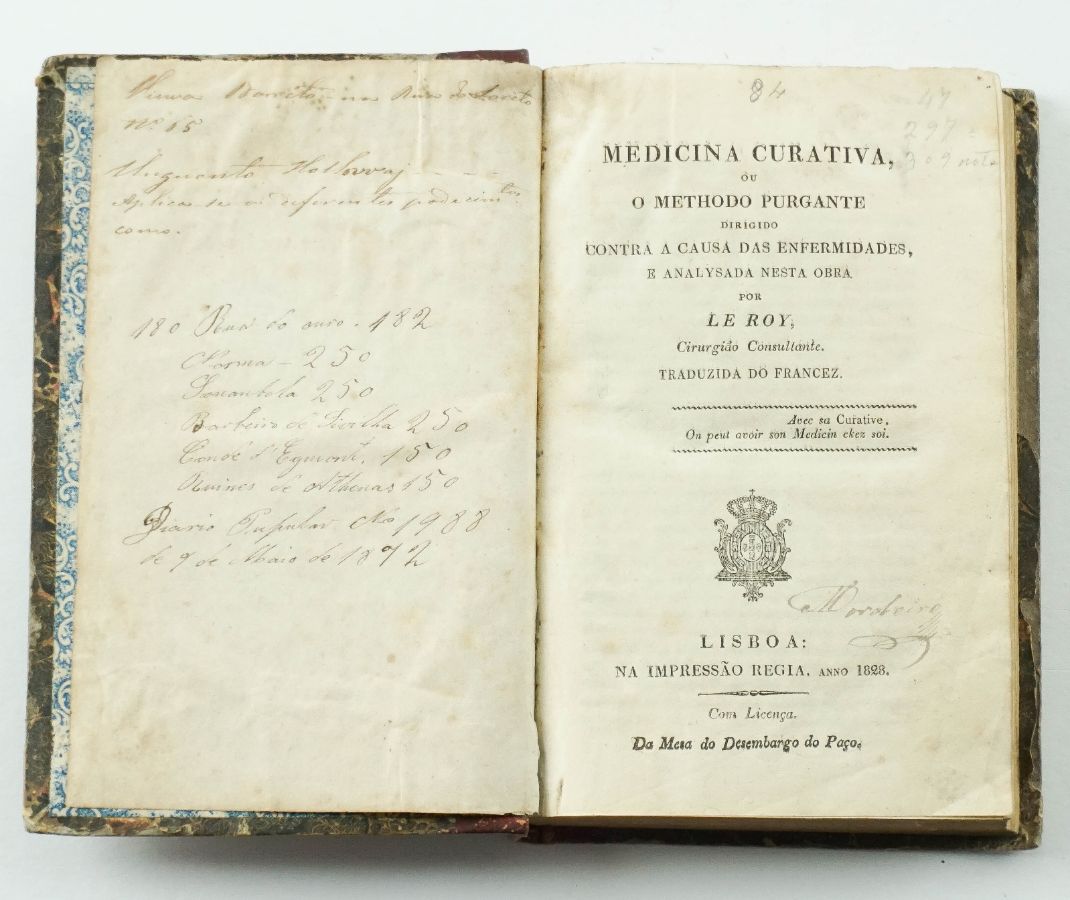 Viuva Barreto - na Rua do Loreto
Nº 15
Unguento Holloway - - -
Aplica-se as diferentes padecimtos
como.
180 Rua do ouro. 182
Norma - 250
250
Barbeiro de Sivilha 250
Conde d'Egmont. 150
Ruines de Athenas 150
Diario Popular No 1988
de 9 de Maio de 1872
84
47
297 =
309 nota
MEDICINA CURATIVA,
OU
O METHODO PURGANTE
DIRIGIDO
CONTRA A CAUSA DAS ENFERMIDADES,
E ANALYSADA NESTA OBRA
POR
LE ROY,
Cirurgião Consultante.
TRADUZIDA DO FRANCEZ.
Avec sa Curative,
On peut avoir son Medicin chez soi.
LISBOA:
NA IMPRESSÃO REGIA. ANNO 1828.
Com Licença.
Da Mesa do Desembargo do Paço.